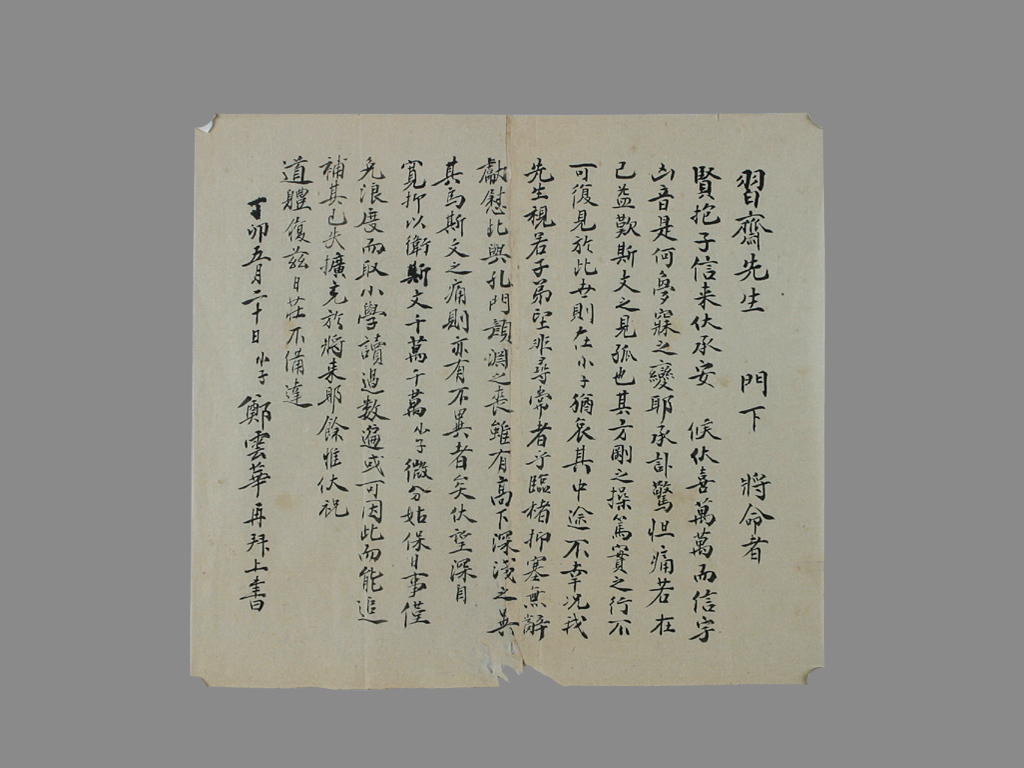 習齋先生 門下 將命者
賢抱子信来伏承安 候伏喜萬萬而信字
凶音是何夢寐之變耶承訃驚怛痛若在
己益歎斯文之見孤也其方剛之操篤實之行不
可復見於此世則在小子猶哀其中途不幸况我
先生視若子弟望非尋常者乎臨楮抑塞無辭
獻慰此與孔門顔淵之喪雖有高下深淺之異
其為斯文之痛則亦有不異者矣伏望深自
寬抑以衛斯文千萬千萬小子微分姑保日事僅
免浪度而取小學讀過数遍或可因此而能追
補其已失擴充於將来耶餘惟伏祝
道體復玆日莊不備達
丁卯五月二十日 小子 鄭雲華 再拜上書